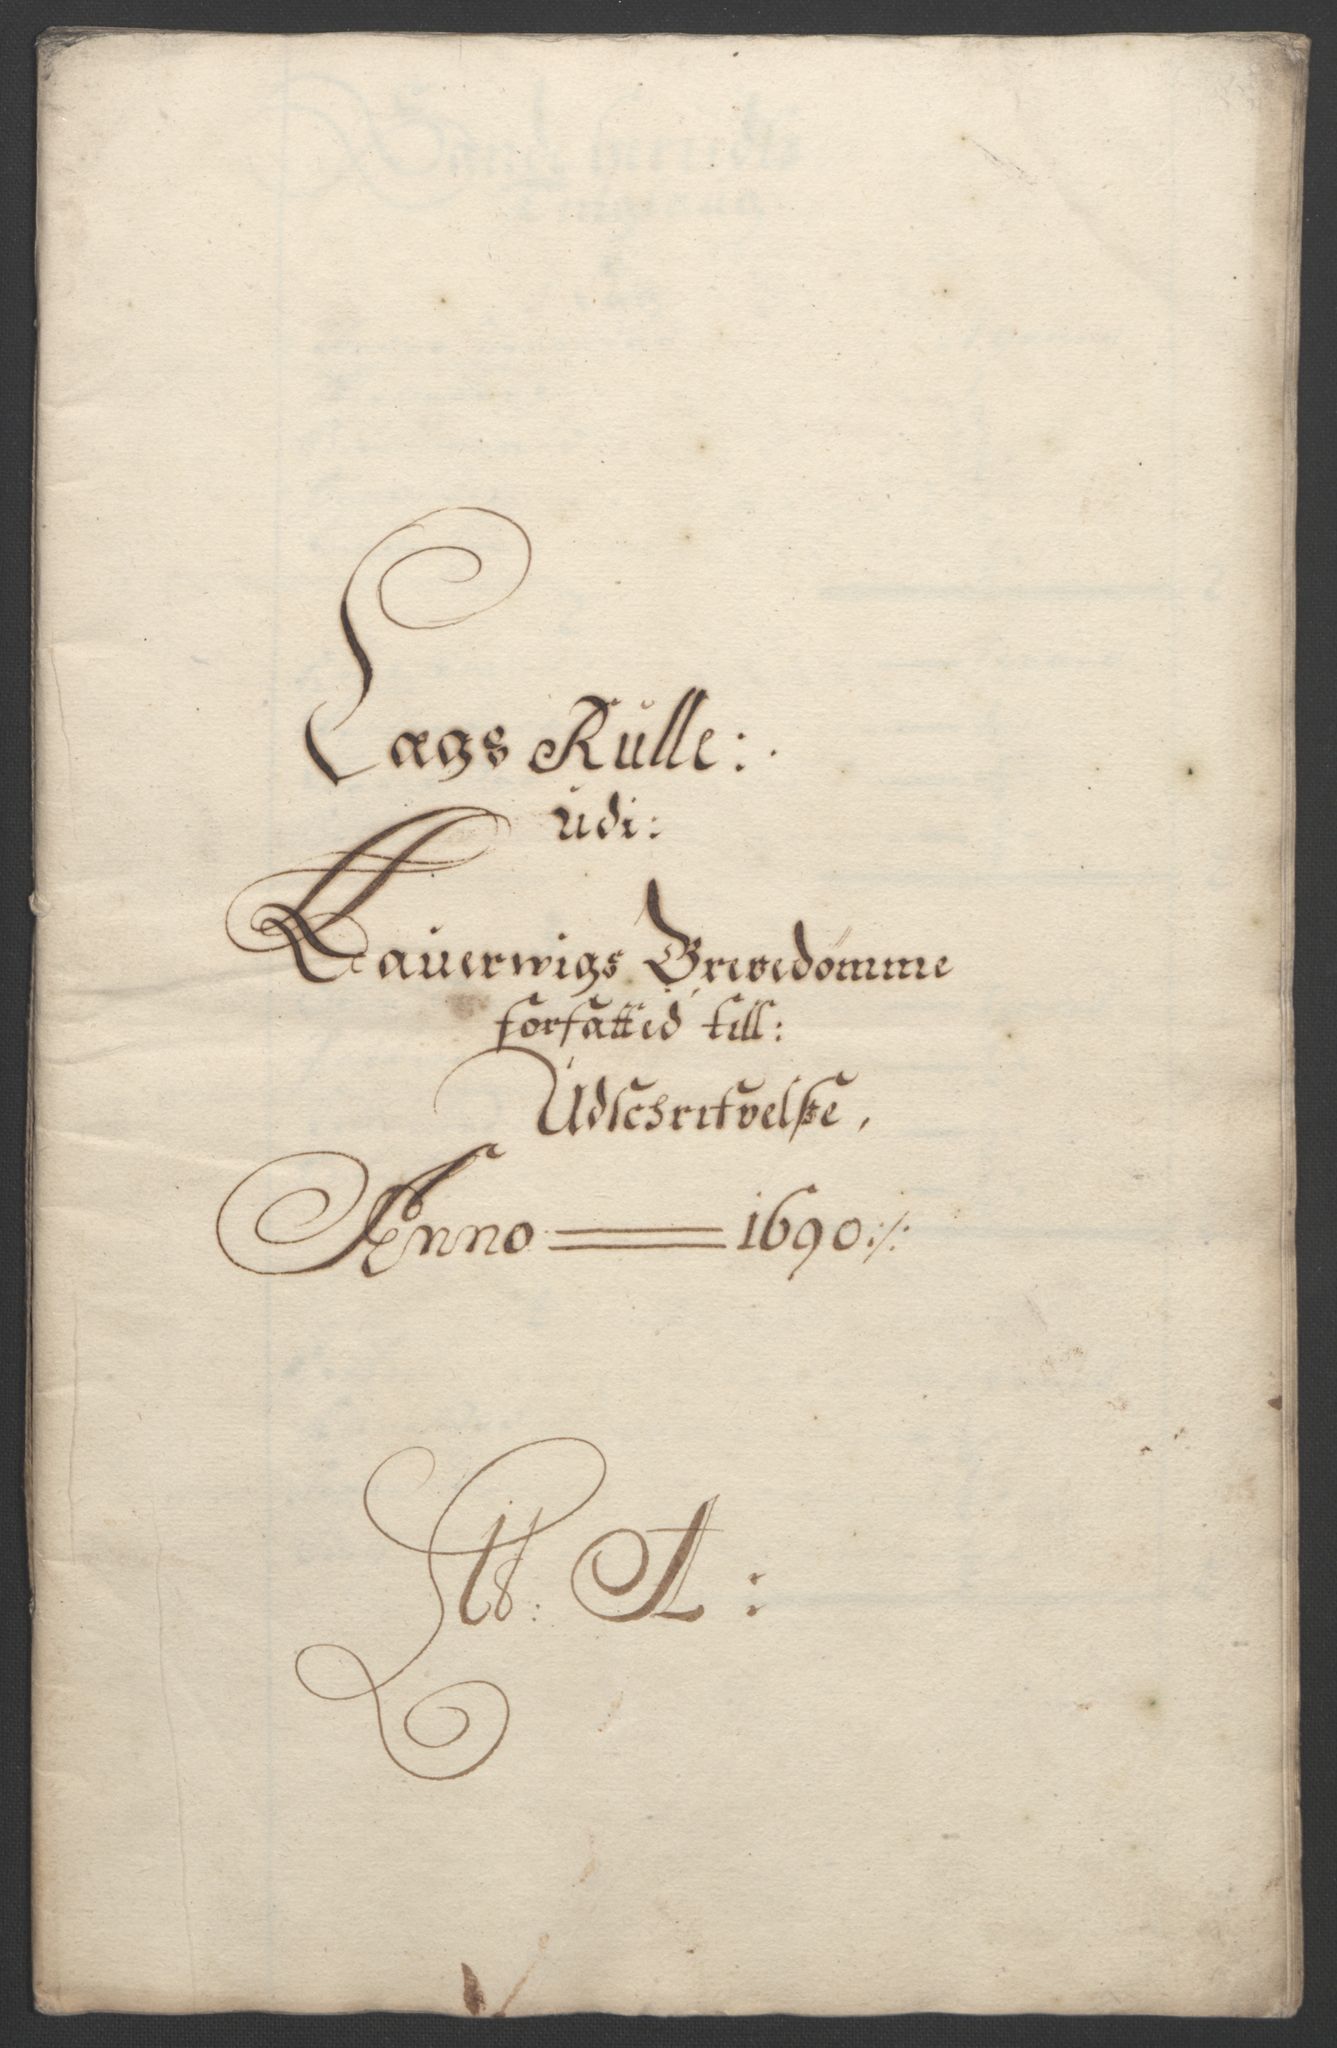 Lags Rulle:
udi:
Laurwigs Grevedømme
forfatted till:
Udschrifvelße,
Anno 1690:/:
Ltr: A: